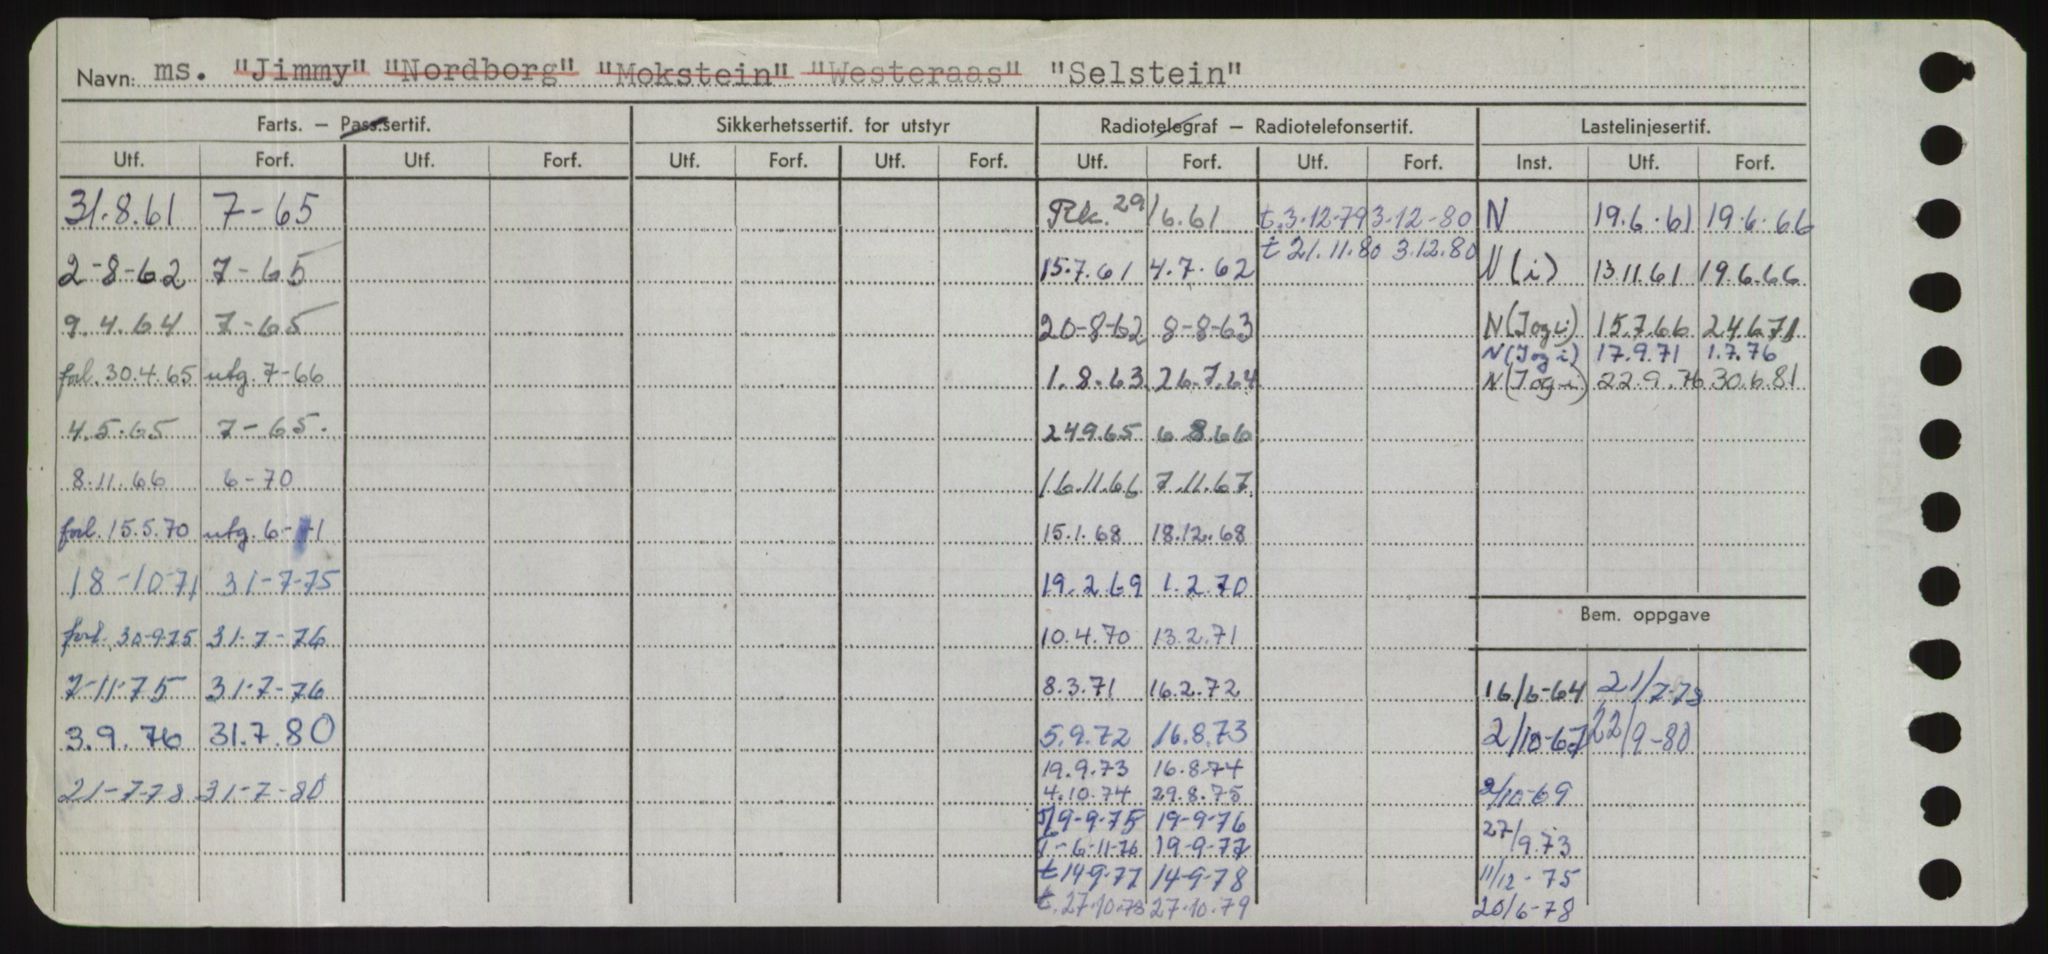 Navn: ms. "Jimmy" "Nordborg" "Mokstein" "Westeraas" "Selstein"
Farts. — Pass.sertif. Sikkerhetssertif. for utstyr Radiotelegraf — Radiotelefonsertif. Lastelinjesertif.
Utf. Forf. Utf. Forf. Utf. Forf. Utf. Forf. Utf. Forf. Utf. Forf. Inst. Utf. Forf.
31.8.61 7-65 Rk. 29/6.61 t.3-12-79 3-12-80 N 19.6.61 19.6.66
t 21.11.80 3.12.80
2-8-62 7-65 15.7.61 4.7.62 N(i) 13.11.61 19.6.66
9.4.64 7-65 20-8-62 8-8-63 N(Jog i) 15.7.66 24.6.71
N(Jog i) 17.9.71 1.7.76
forl. 30.4.65 utg. 7-66 1.8.63 26.7.64 N(Jog i) 22.9.76 30.6.81
4.5.65 7-65. 24.9.65 6.8.66
8.11.66 6-70 16.11.66 7.11.67
forl. 15.5.70 utg. 6-71 15.1.68 18.12.68
18-10-71 31-7-75 19.2.69 1.2.70
Bem. oppgave
forl. 30-9-75 31-7-76 10.4.70 13.2.71
7-11-75 31-7-76 8.3.71 16.2.72 16/6-64 21/7-78
3.9.76 31.7.80 5.9.72 16.8.73 2/10-67 22/9-80
19.9.73 16.8.74
21-7-78 31-7-80 4.10.74 29.8.75 2/10-69
19-9-75 19-9-76 27/9.73
T-6-11-76 19-9-77
t 14-9-77 14-9-78 11/12-75
t. 27.10.78 27.10.79 20/6-78